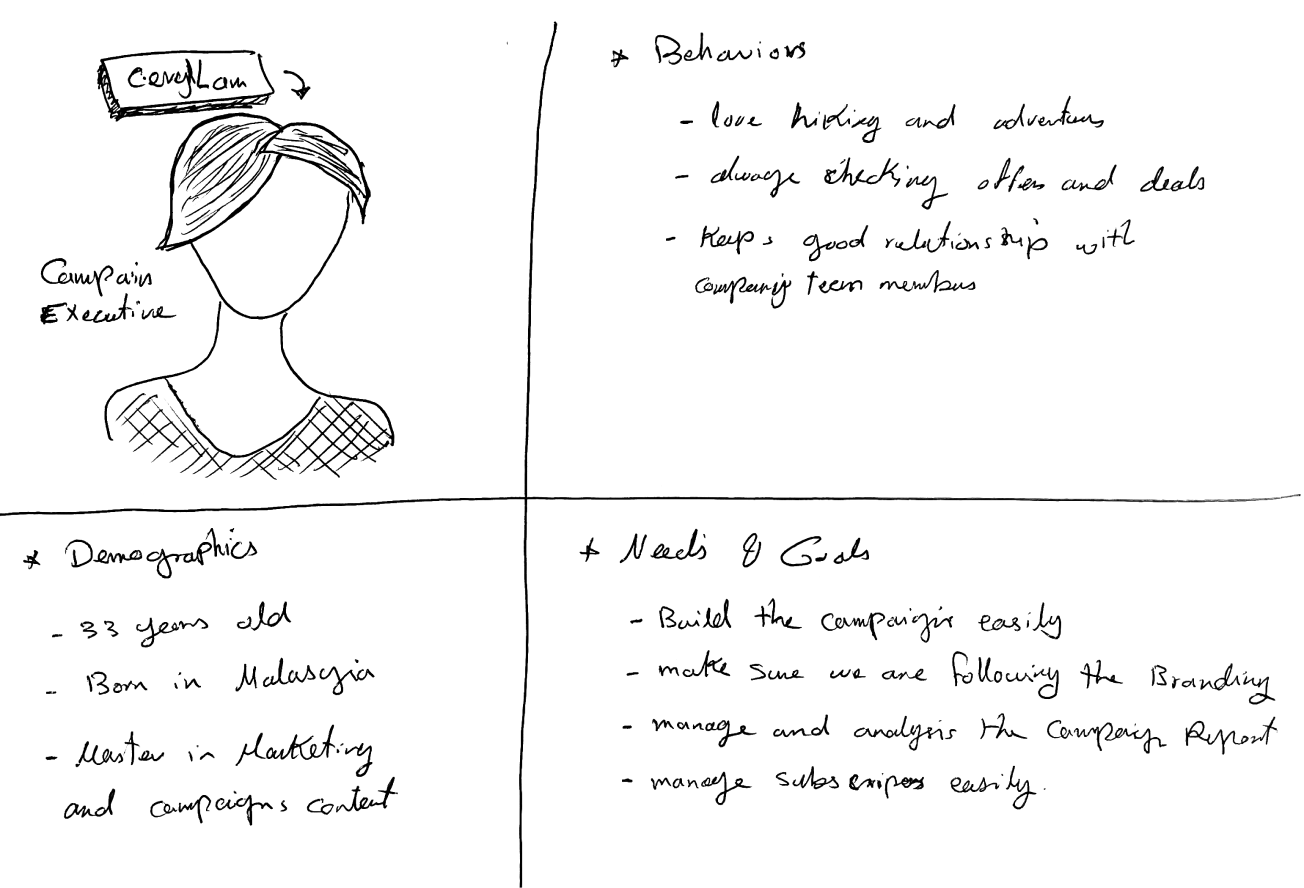 Lam
Campain
Executive
* Behaviors
- love hiking and adventures
- always checking offers and deals
- Keeps good relationship with
company team members
* Demographics
- 33 years old
- Born in Malasyia
- Master in Marketing
and campaigns content
* Needs & Goals
- Build the campaign easily
- make sure we are following the Branding
- manage and analysis the Campaign Report
- manage easily.